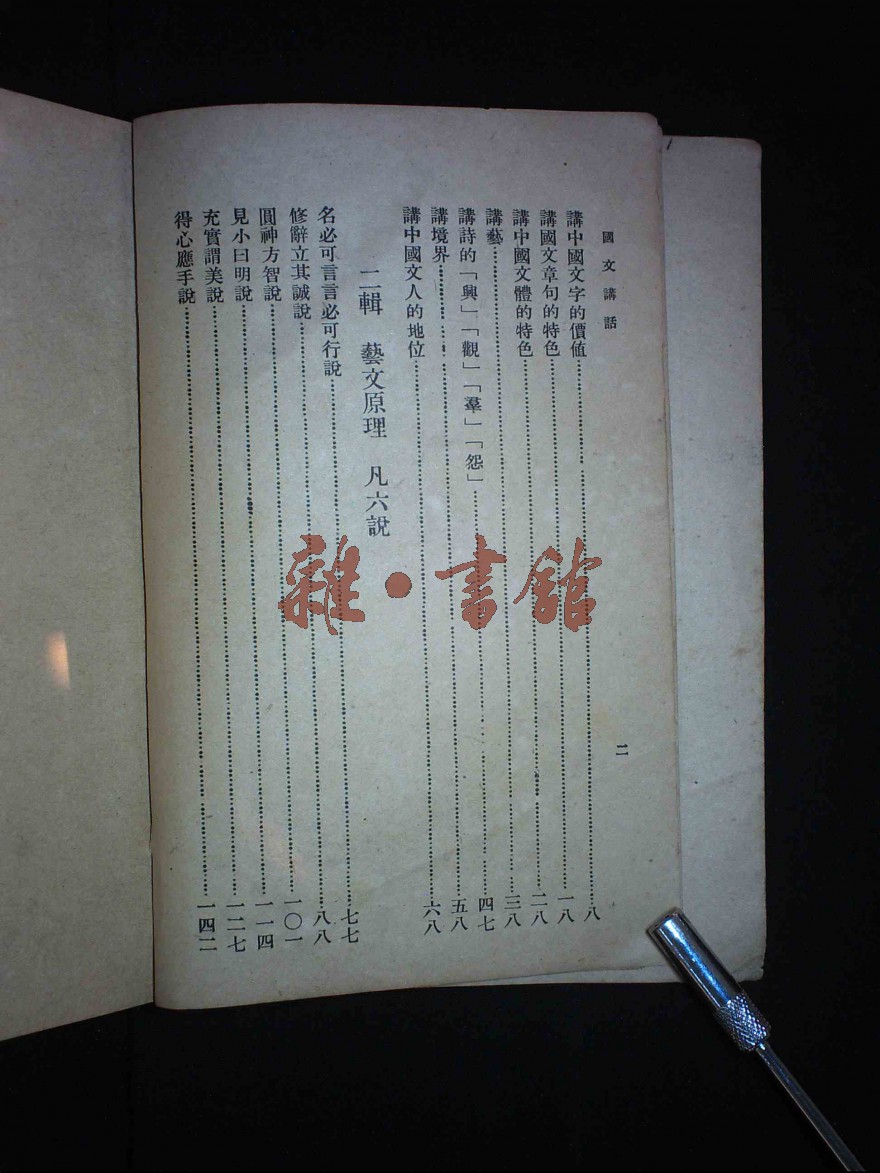 國文講話
二
講中國文字的價値……八
講國文章句的特色……一八
講中國文體的特色……二八
講藝……三八
講詩的「興」「觀」「羣」「怨」……四七
講境界……五八
講中國文人的地位……六八
二輯　藝文原理　凡六說
名必可言言必可行說……七七
修辭立其誠說……八八
圓神方智說……一〇一
見小曰明說……一一四
充實謂美說……一二七
得心應手說……一四二
雜·書館